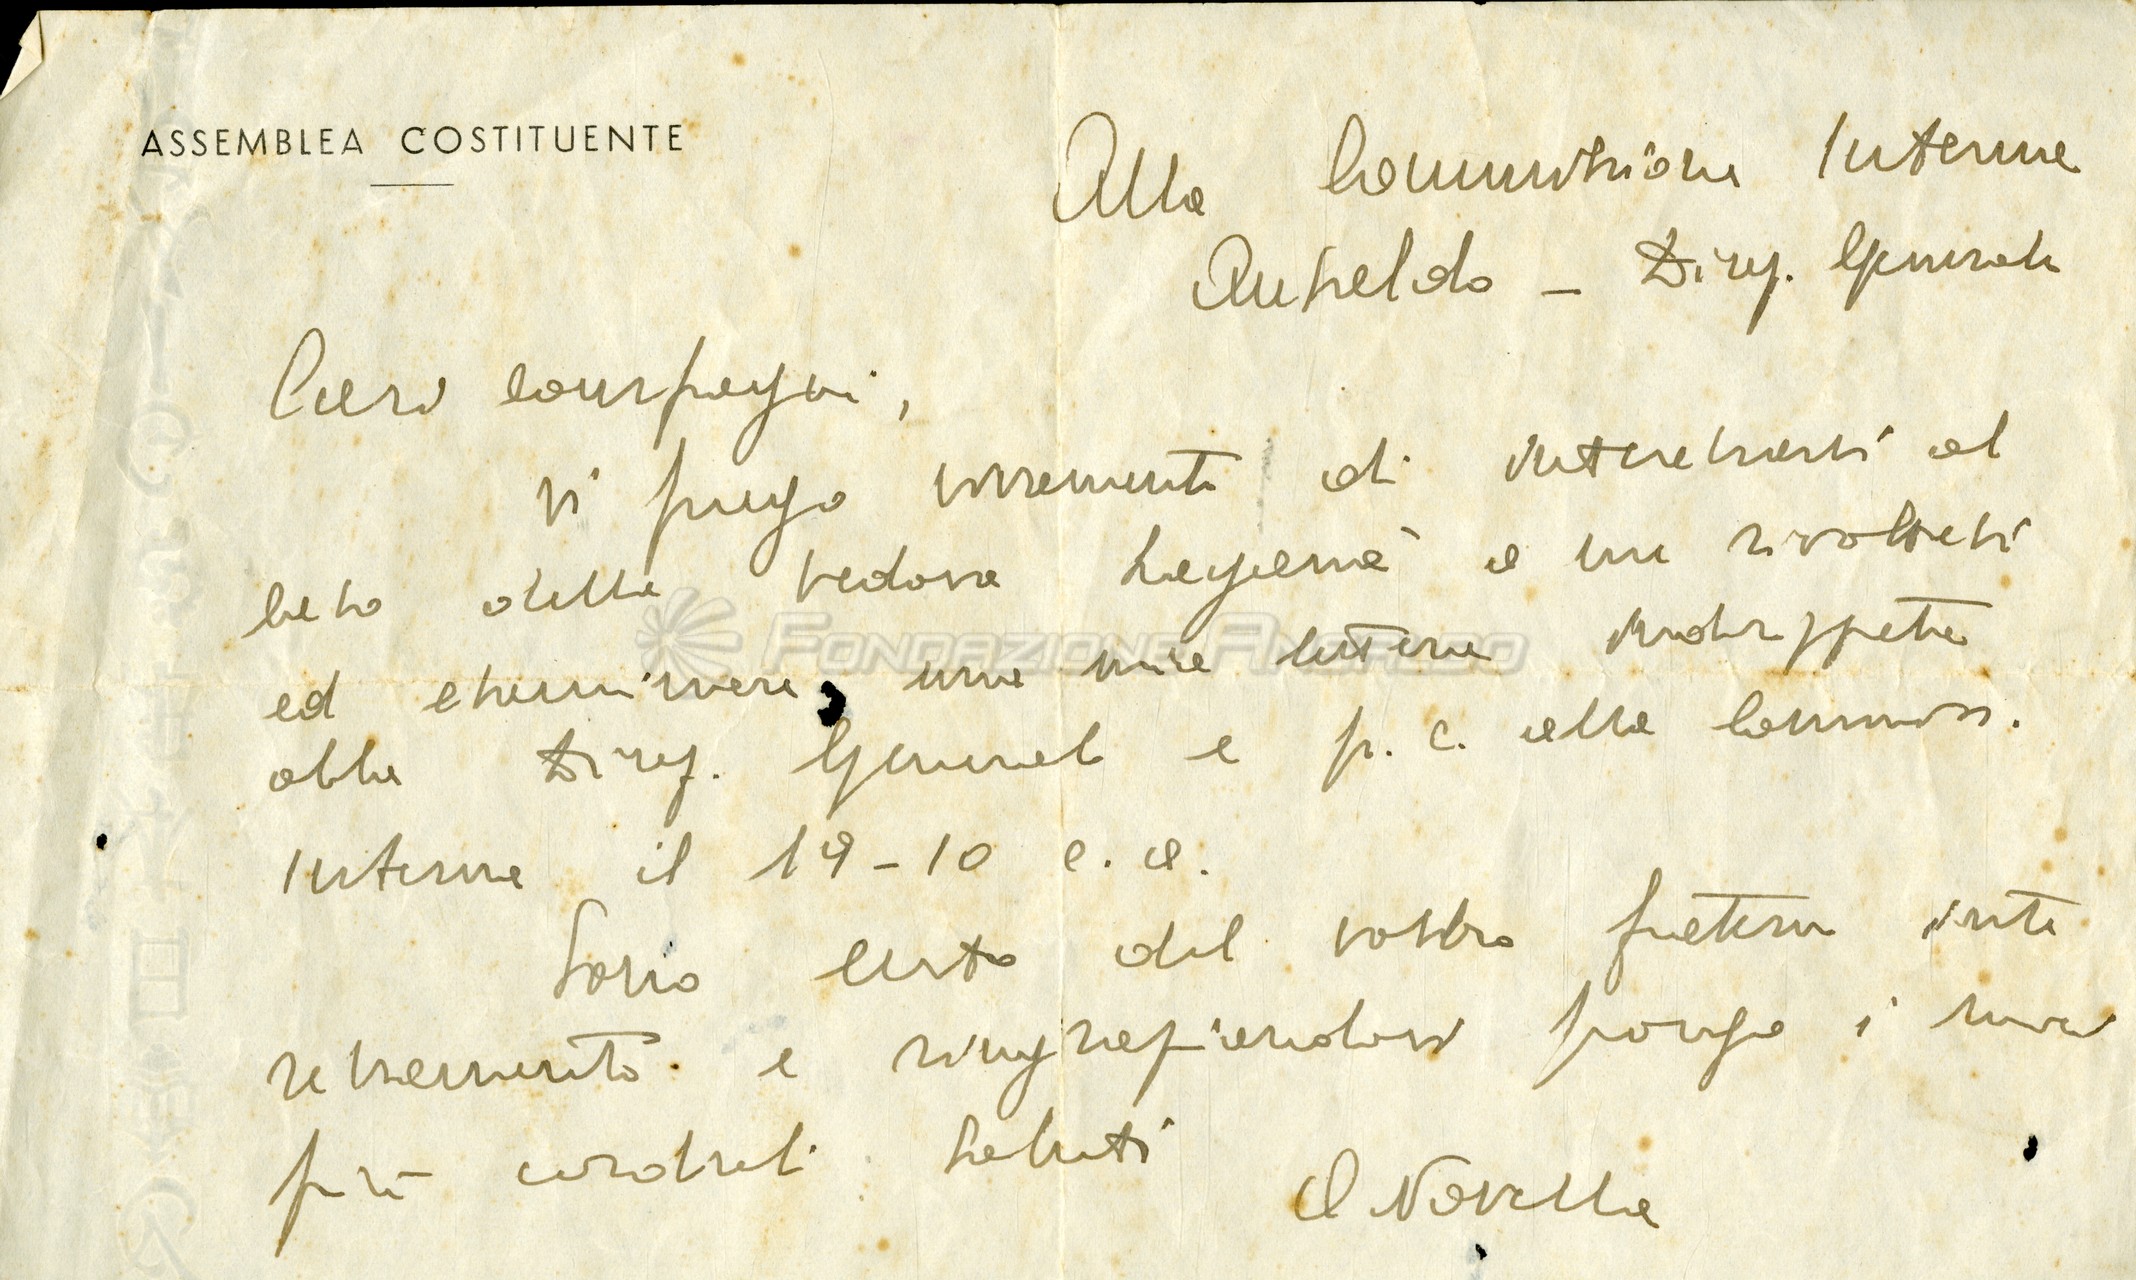 ASSEMBLEA COSTITUENTE
Alla Commissione Interna
Ansaldo - Direz. Generale
Cari compagni,
Vi prego vivamente di interessarvi al
caso della vedova a me rivoltasi
ed esaminare una mia lettera indirizzata
FONDAZIONE ANSALDO
alla Direz. Generale e p. c. alla Commiss.
Interna il 19-10 c. a.
Sono certo del vostro fraterno inte
ressamento e ringraziandovi porgo i miei
più cordiali saluti
A Novella